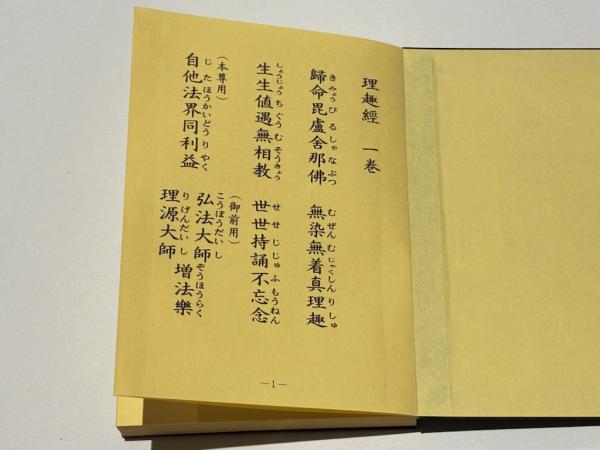 理趣經　一巻
歸命毘盧舍那佛　無染無着真理趣
き みょう び る しゃ な ぶつ　む ぜん む じゃく しん り しゅ
生生値遇無相教　世世持誦不忘念
しょうじょう ち ぐう む そうきょう　せ せ じ じゅ ふ もうねん
（本尊用）
自他法界同利益
じ た ほうかいどう り やく
（御前用）
弘法大師
こうぼうだい し
理源大師
り げんだい し
増法樂
ぞうほうらく
—1—